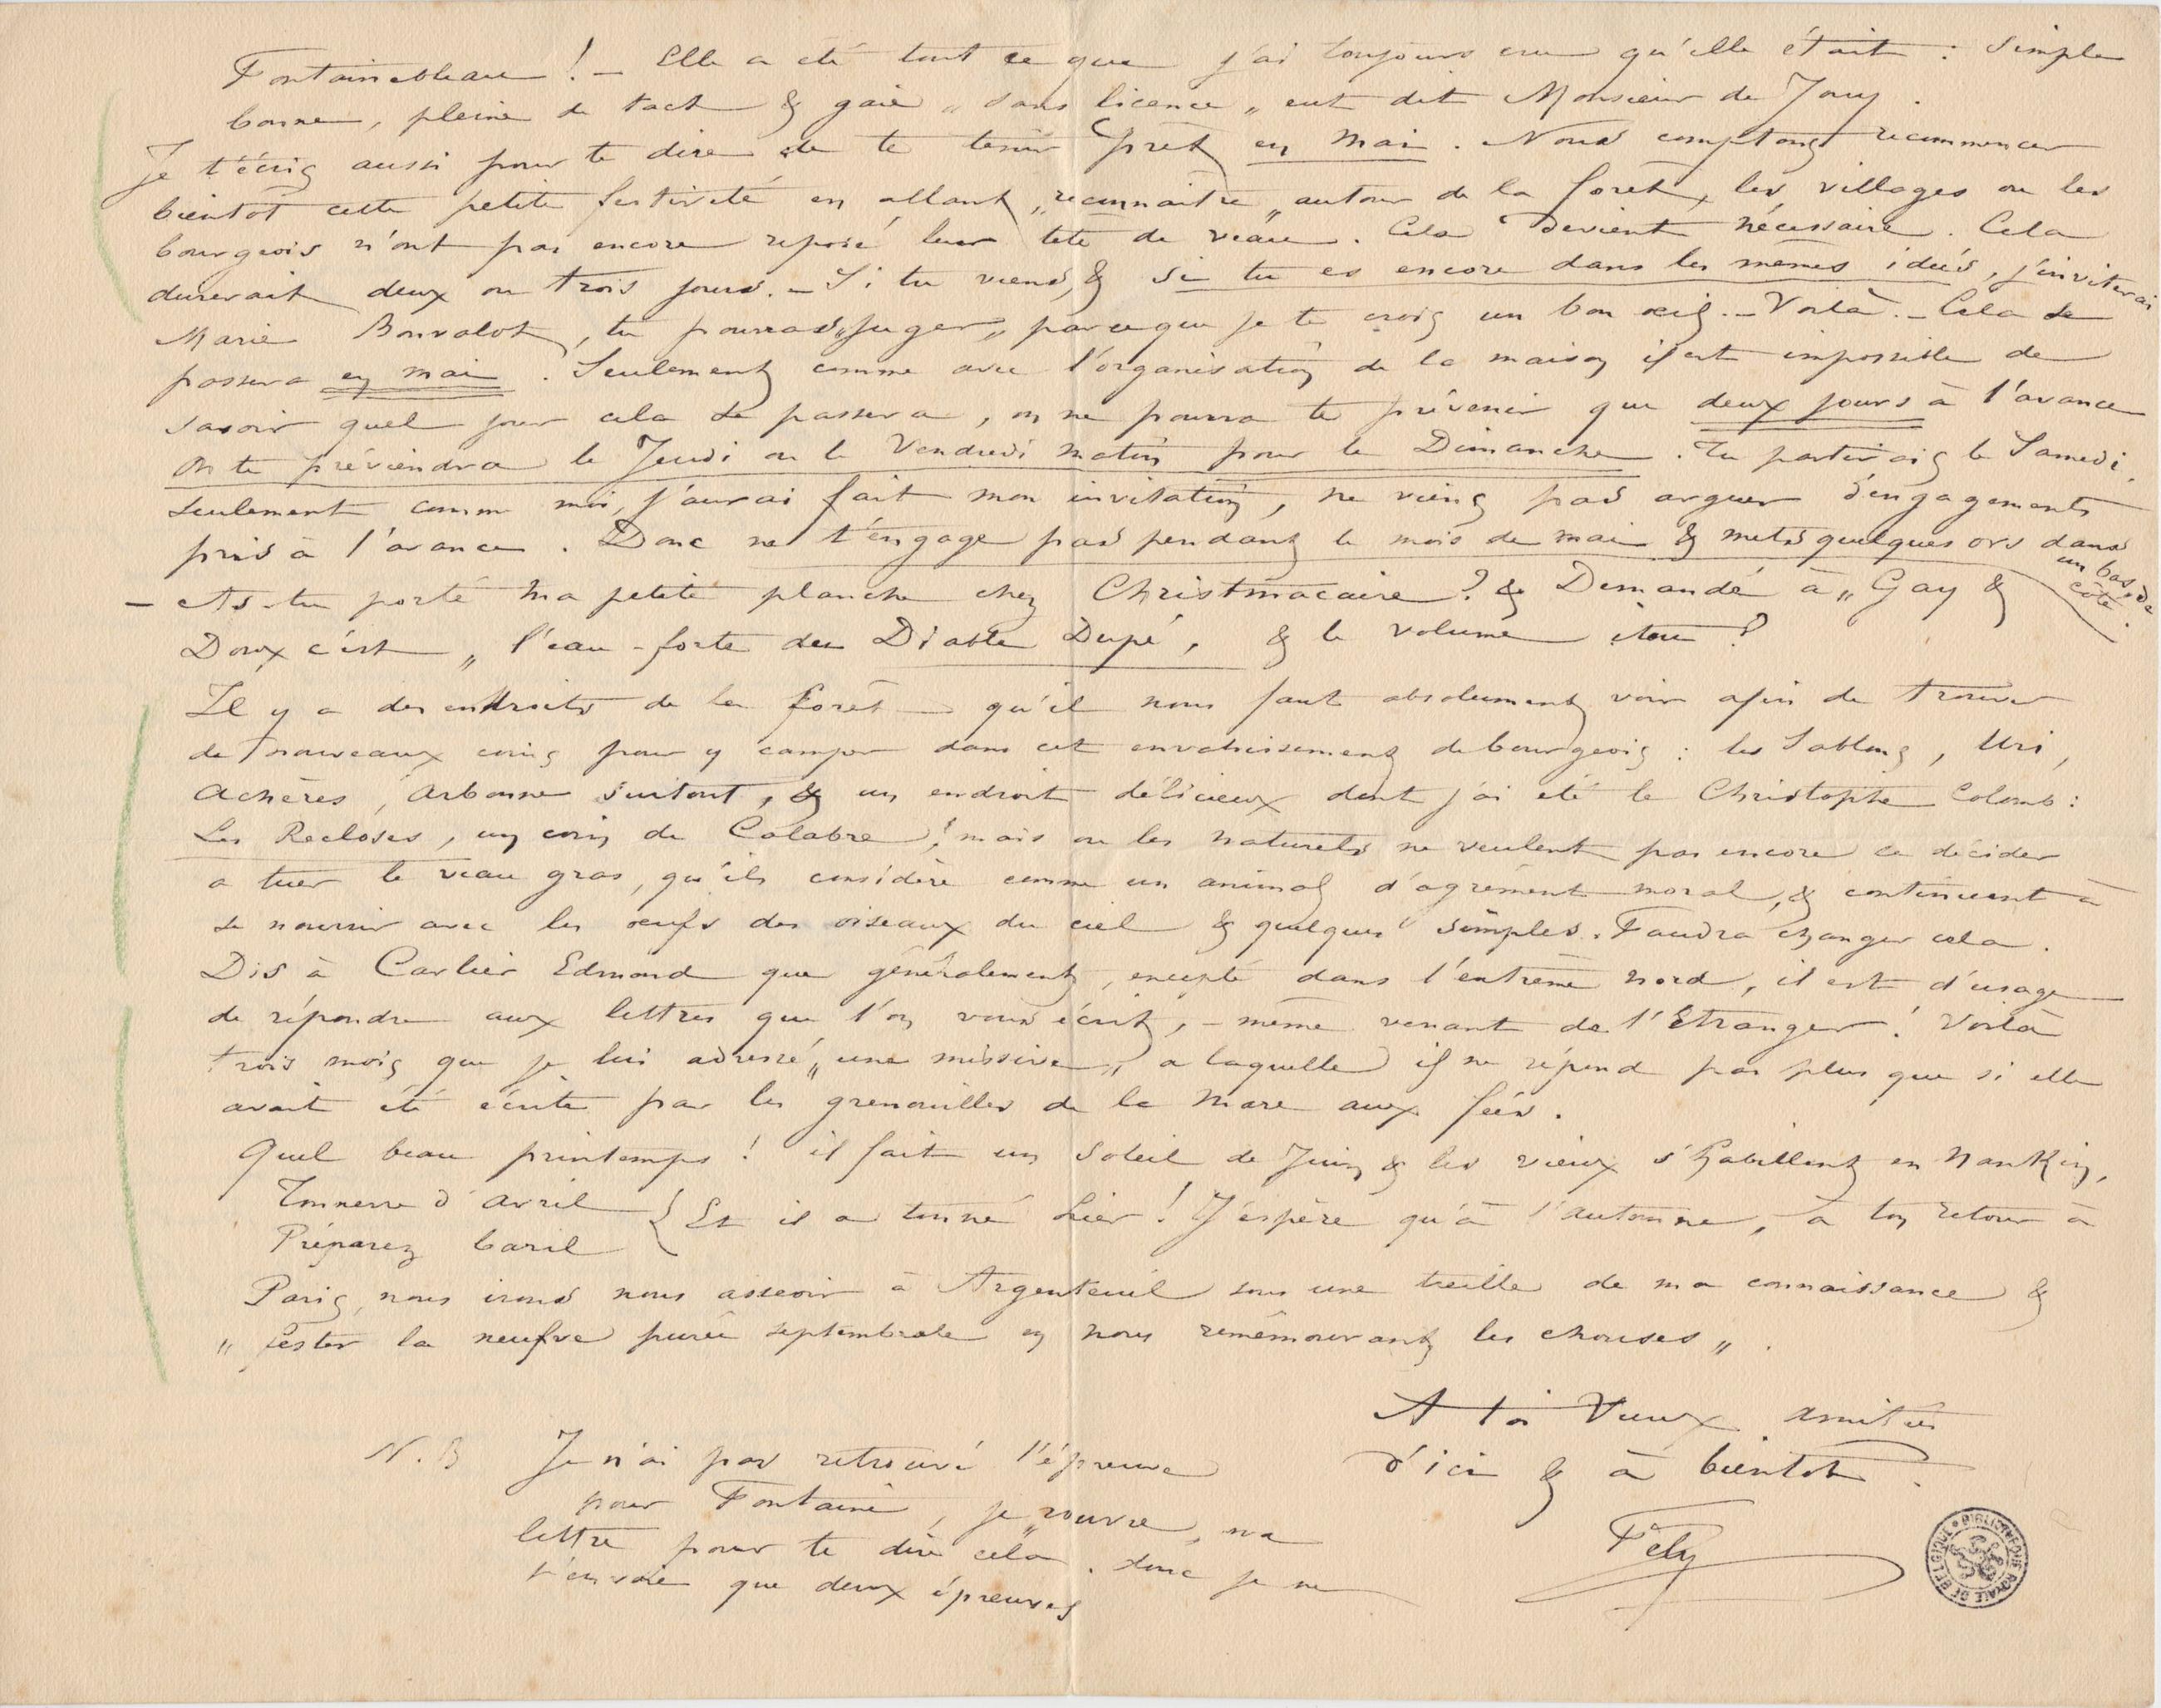 Fontainebleau ! — Elle a été tout ce que j'ai toujours cru qu'elle était : simple
bonne, pleine de tact & gaie „ sans licence „ eut dit Monsieur de Jouy .
Je t'écris aussi pour te dire de te tenir prêt en mai . Nous comptons recommencer
bientôt cette petite festivité en allant „ reconnaitre „ autour de la forêt, les villages ou les
bourgeois n'ont pas encore reposé leur tête de veau . Cela devient nécessaire . Cela
durerait deux ou trois jours. — Si tu viens, & si tu es encore dans les mêmes idées, j'inviterai
Marie Bonvalot, tu pourras „ juger „ parceque je te crois un bon œil. — Voilà. — Cela se
passera en mai . Seulement comme avec l'organisation de la maison il est impossible de
savoir quel jour cela se passera, on ne pourra te prévenir que deux jours à l'avance
On te préviendra le Jeudi ou le Vendredi matin pour le Dimanche . Tu partirais le Samedi,
seulement comme moi, j'aurai fait mon invitation, ne viens pas arguer d'engagements
pris à l'avance . Donc ne t'engage pas pendant le mois de mai & mets quelques ors dans
un bas, de
côté .
— As-tu porté ma petite planche chez Christmacaire ? & Demandé à „ Gay &
Doux c'est „ l'eau-forte du Diable Dupé, & le volume itou ?
Il y a des endroits de la forêt — qu'il nous faut absolument voir afin de trouver
de nouveaux coins pour y camper dans cet envahissement de bourgeois : les Sablons, Uri,
Achères, Arbonne surtout, & un endroit délicieux dont j'ai été le Christophe Colomb :
Les Recloses, un coin de Calabre ! mais ou les naturels ne veulent pas encore ce décider
a tuer le veau gras, qu'ils considère comme un animal d'agrément moral, & continuent à
se nourrir avec les œufs des oiseaux du ciel & quelques simples. Faudra changer cela .
Dis à Carlier Edmond que généralement, excepté dans l'extrême nord, il est d'usage
de répondre aux lettres que l'on vous écrit, — même venant de l'Etranger ! Voilà
trois mois que je lui adressé „ une missive „ a laquelle il ne répond pas plus que si elle
avait été écrite par les grenouilles de la Mare aux fées .
Quel beau printemps ! il fait un Soleil de Juin & les vieux s'habillent en Nankin,
Tonnerre d'avril
Préparez baril
{ Et il a tonné hier ! J'espère qu'à l'automne, à ton retour à
Paris, nous irons nous asseoir à Argenteuil sous une treille de ma connaissance &
„ fester la neufve purée septembrale en nous remémourant les chouses „ .
A toi Vieux amitiés
d'ici & à bientôt .
Fély
N. B Je n'ai pas retrouvé l'épreuve
pour Fontaine, je „ rouvre „ ma
lettre pour te dire cela . donc je ne
t'envoie que deux épreuves
BIBLIOTHEQUE ROYALE DE BELGIQUE